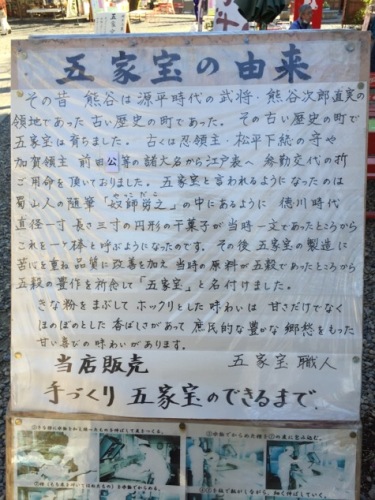 五家宝の由来
その昔 熊谷は源平時代の武将・熊谷次郎直実の
領地であった古い歴史の町であった。その古い歴史の町で
五家宝は育ちました。古くは忍領主・松平下総の守や
加賀領主 前田公等の諸大名から江戸表へ参勤交代の折
ご用命を頂いておりました。五家宝と言われるようになったのは
蜀山人の随筆「奴師労之」の中にあるように 徳川時代
直径一寸 長さ三寸の円形の干菓子が当時一文であったところから
これを一ヶ棒と呼ぶようになったのです。その後 五家宝の製造に
苦心を重ね品質に改善を加え 当時の原料が五穀であったところから
五穀の豊作を祈念して「五家宝」と名付けました。
きな粉をまぶして ホックリとした味わいは 甘さだけでなく
ほのぼのとした香ばしさがあって庶民的な豊かな郷愁をもった
甘い喜びの味わいがあります。
当店販売 五家宝職人
手づくり 五家宝のできるまで